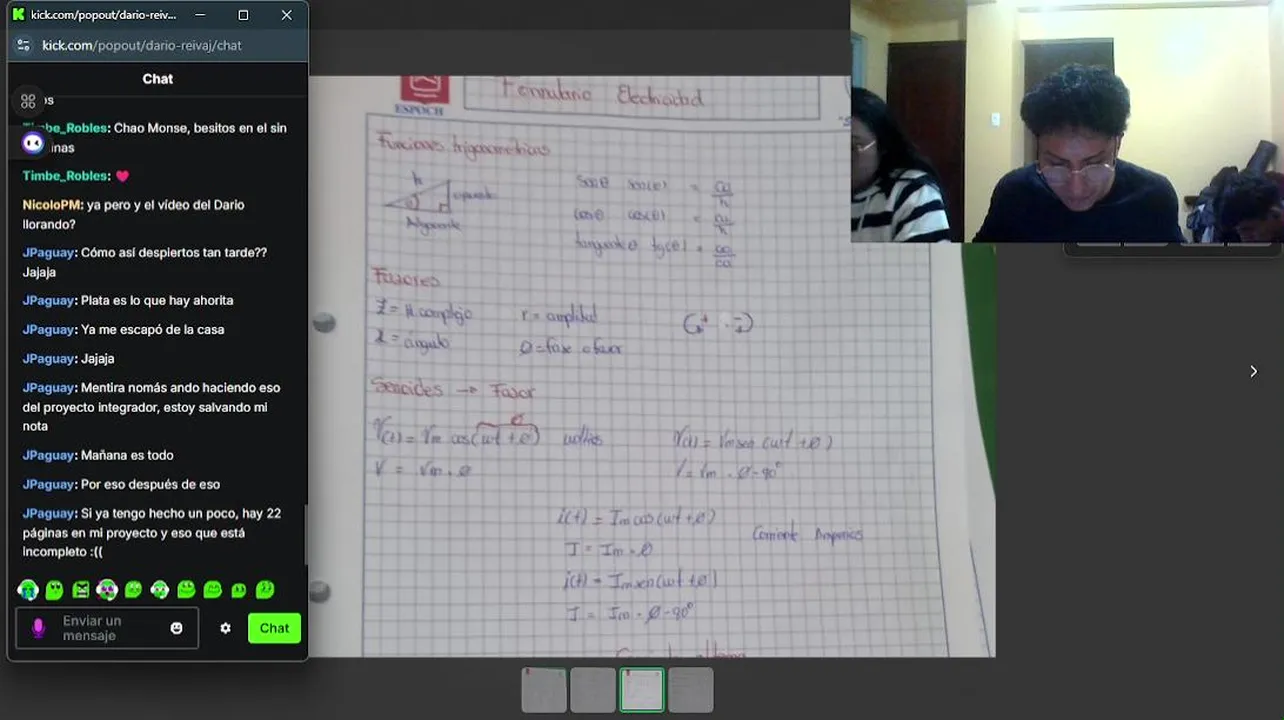 kick.com/popout/dario-reiv...
kick.com/popout/dario-reivaj/chat
Chat
Timbe_Robles: Chao Monse, besitos en el sin
Timbe_Robles:
NicoloPM: ya pero y el vídeo del Dario
llorando?
JPaguay: Cómo así despiertos tan tarde??
Jajaja
JPaguay: Plata es lo que hay ahorita
JPaguay: Ya me escapó de la casa
JPaguay: Jajaja
JPaguay: Mentira nomás ando haciendo eso
del proyecto integrador, estoy salvando mi
nota
JPaguay: Mañana es todo
JPaguay: Por eso después de eso
JPaguay: Si ya tengo hecho un poco, hay 22
páginas en mi proyecto y eso que está
incompleto :((
Enviar un
mensaje
Chat
ESPOCH
Formulario Electricidad
Funciones trigonometricas
h
Adyacente
senθ sen(θ) = co/h
cosθ cos(θ) =
tangente θ tg(θ) = co/ca
Fasores
Z = N. complejo r = amplitud
= angulo Ø = fase o fasor
Senoides → Fasor
V(t) = Vm cos(wt + Ø) voltios V(t) = Vm sen (wt + Ø)
V = Vm · Ø V = Vm · Ø-90°
i(t) = Im cos(wt + Ø)
Corriente Amperios
I = Im · Ø
i(t) = Im sen(wt + Ø)
I = Im · Ø-90°